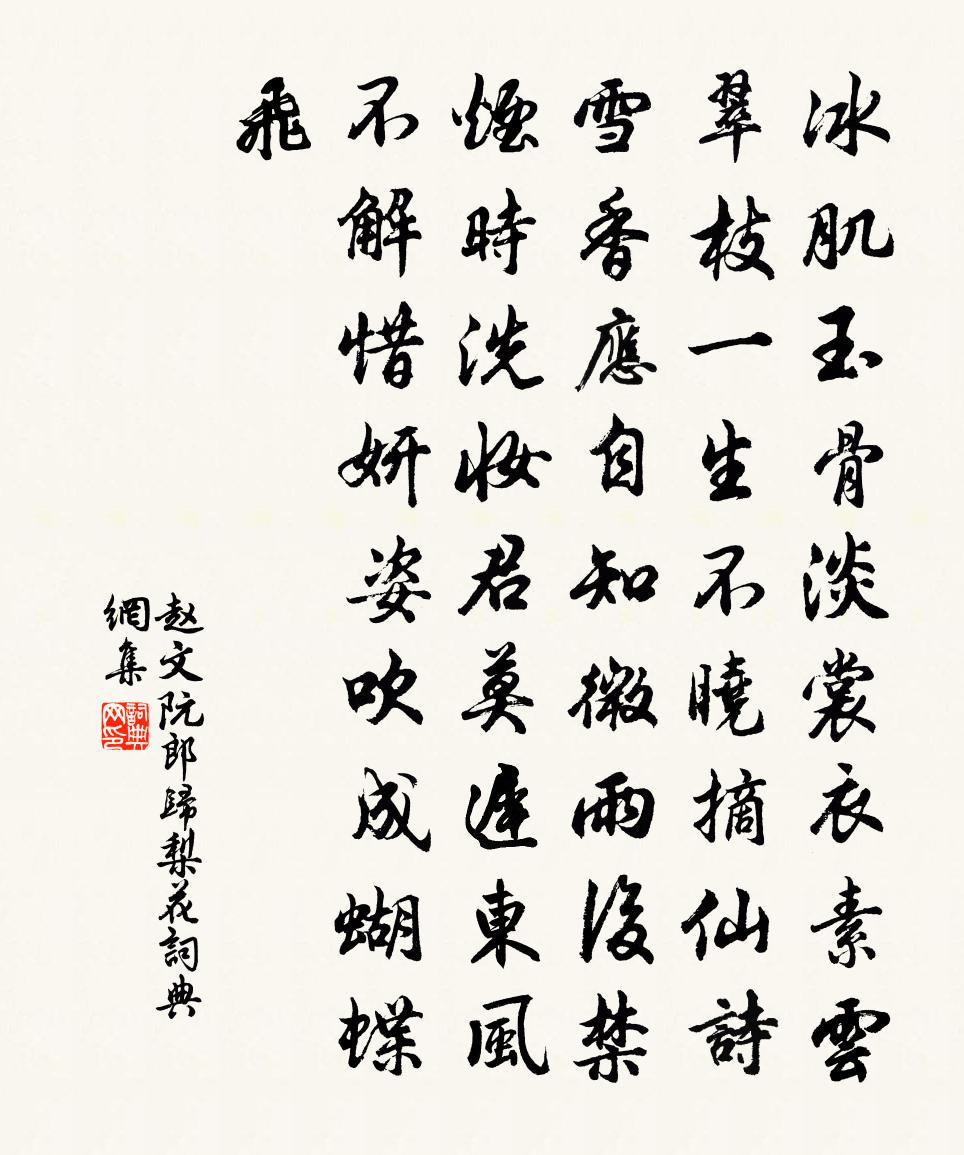 冰肌玉骨淡裳衣素雲
翠枝一生不曉摘仙詩
雪香應自知微雨後禁
煙時洗妝君莫遲東風
不解惜妍姿吹成蝴蝶
飛
赵文阮郎歸梨花詞典
網集
詞典
网印